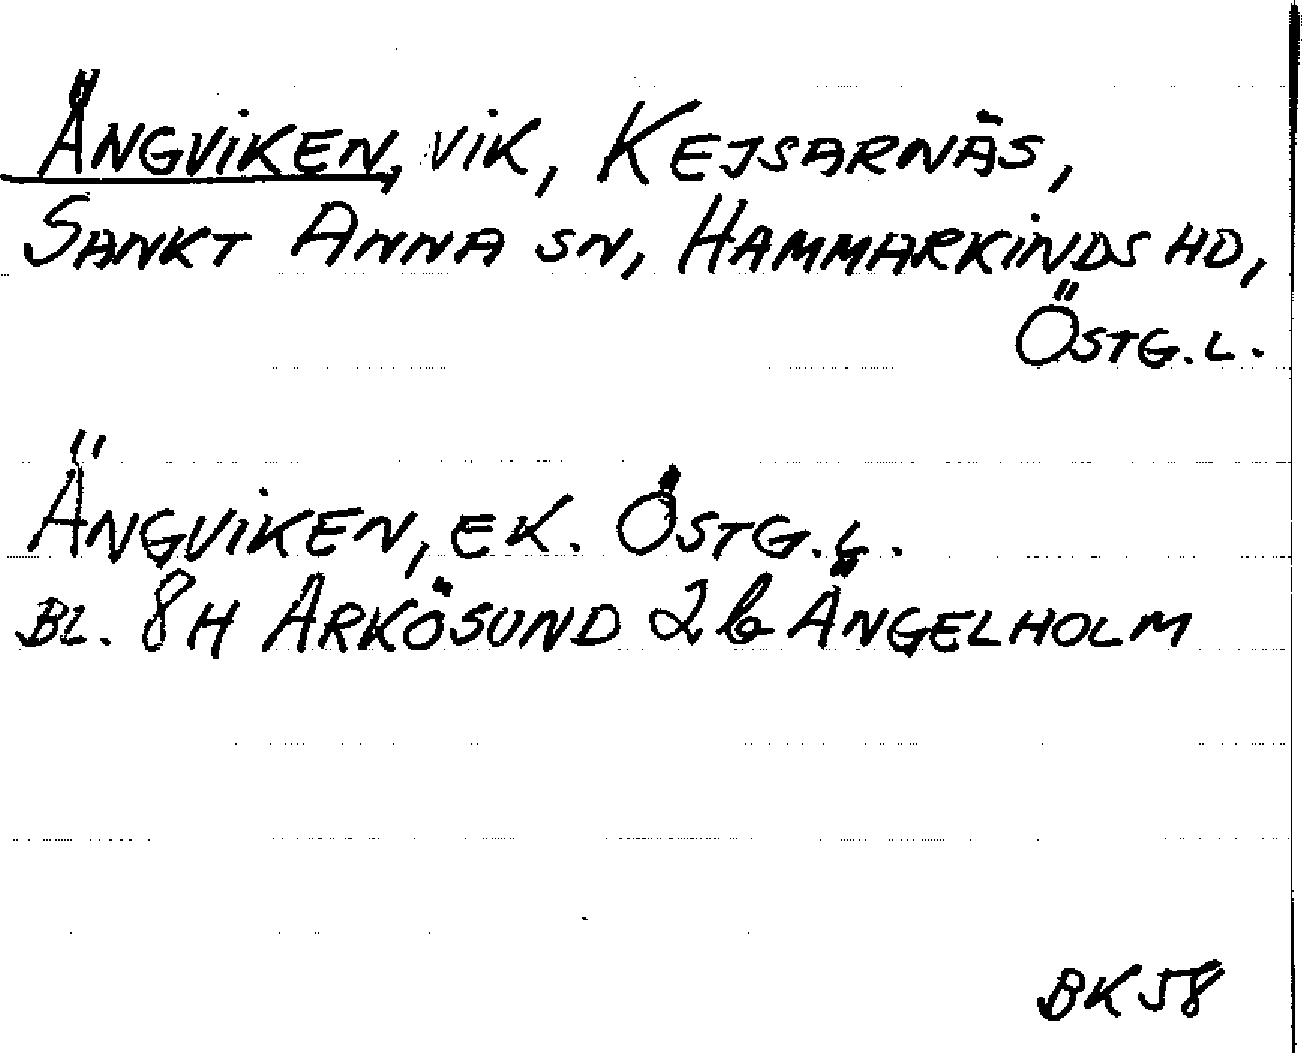 ÄNGVIKEN, VIK, KEJSARNÄS,
SANKT ANNA SN, HAMMARKINDS HD,
ÖSTG. L.
ÄNGVIKEN, EK. ÖSTG. L.
BL. 8H ARKÖSUND 2b ÄNGELHOLM
BK 58